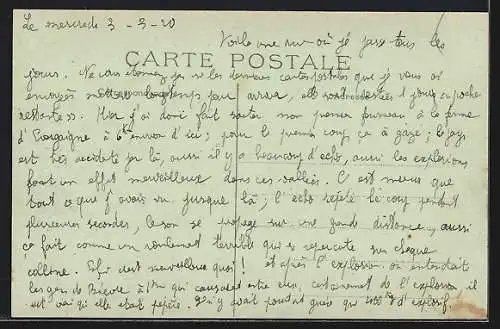 Le mercredi 3-3-20
Voilà une rue où je passe tous les
CARTE POSTALE
jours. Ne vous étonnez pas si les dernières cartes postales que je vous ai
envoyées mettent longtemps pour arriver, elles sont restées 2 jours en poche
restante. Hier j'ai donc fait sauter mon premier fourneau à la ferme
d' à 6 km environ d'ici; pour le premier coup ça a gazé; le pays
est très accidenté par là, aussi il y a beaucoup d'écho, aussi les explosions
font un effet merveilleux dans ces vallées. C'est mieux que
tout ce que j'avais vu jusque là; l'écho répète le coup pendant
plusieurs secondes, le son se propage sur une grande distance, aussi
ça fait comme un roulement terrible qui se répercute sur chaque
colline. Enfin c'est merveilleux quoi! et après l'explosion on entendait
les gens de Bièvre à 1 km qui causaient entre eux, certainement de l'explosion il
est vrai qu'elle était pépère. Il n'y avait pourtant guère que 400 d'explosif.